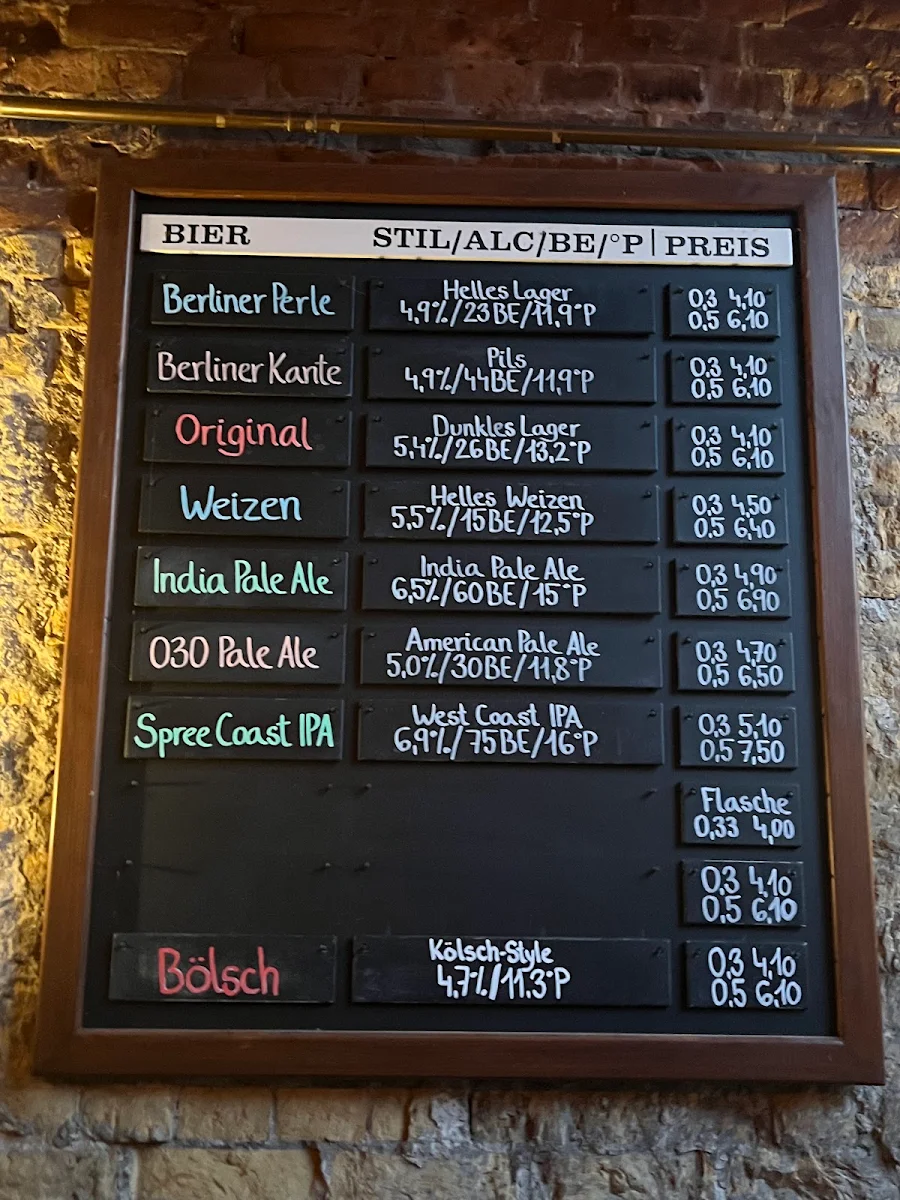 BIER STIL/ALC/BE/°P | PREIS
Berliner Perle
Helles Lager
4,9%/23BE/11,9°P
0,3 4,10
0,5 6,10
Berliner Kante
Pils
4,9%/44BE/11,9°P
0,3 4,10
0,5 6,10
Original
Dunkles Lager
5,4%/26BE/13,2°P
0,3 4,10
0,5 6,10
Weizen
Helles Weizen
5,5%/15BE/12,5°P
0,3 4,50
0,5 6,40
India Pale Ale
India Pale Ale
6,5%/60BE/15°P
0,3 4,90
0,5 6,90
030 Pale Ale
American Pale Ale
5,0%/30BE/11,8°P
0,3 4,70
0,5 6,50
Spree Coast IPA
West Coast IPA
6,9%/75BE/16°P
0,3 5,10
0,5 7,50
Flasche
0,33 4,00
0,3 4,10
0,5 6,10
Bölsch
Kölsch-Style
4,7%/11,3°P
0,3 4,10
0,5 6,10